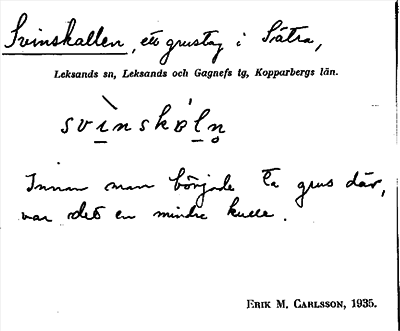 Svinskallen, ett grustag i Sätra,
Leksands sn, Leksands och Gagnefs tg, Kopparbergs län.
svı̱̀nskɒ́l̠n̥
Innan man började ta grus där,
var det en mindre kulle.
ERIK M. CARLSSON, 1935.